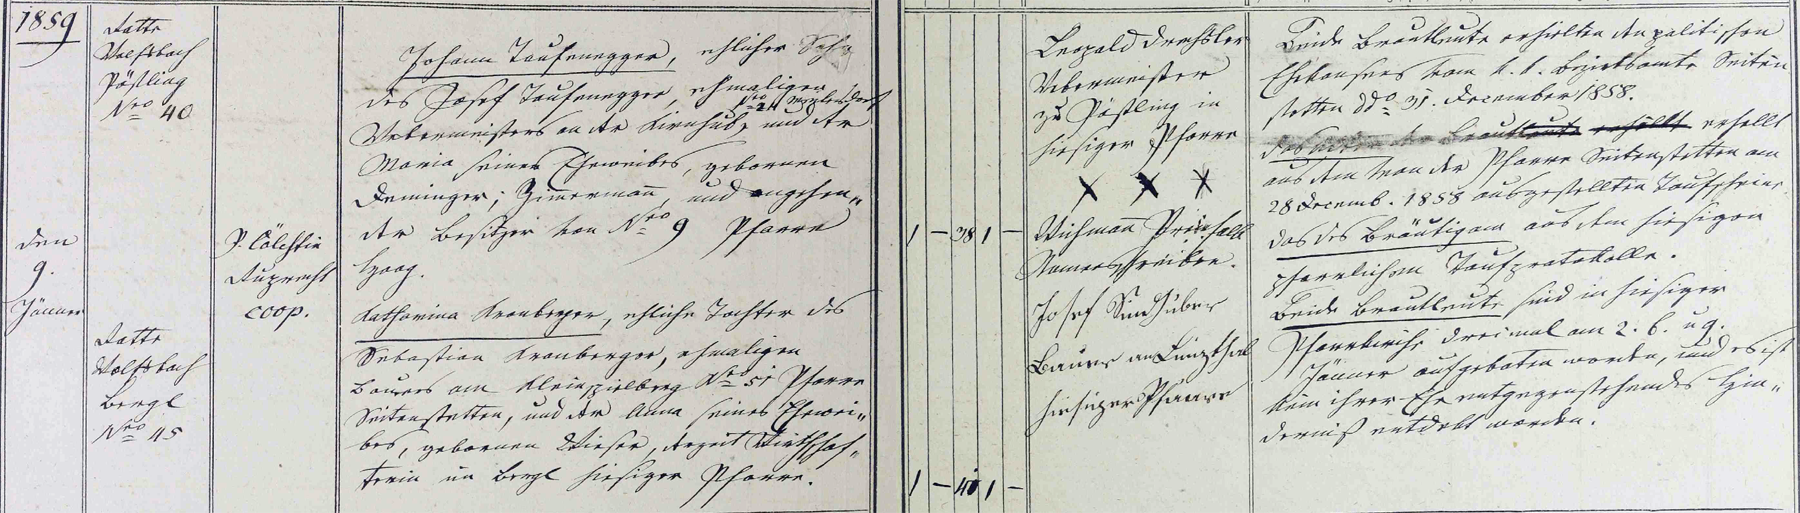 1859
Datto
Wolfsbach
Pöstling
Nro 40
den
9.
Jänner
Datto
Wolfsbach
Bergl
Nro 45
P. Cölestin
Ruprecht
coop.
Johann Taufenegger, ehlicher Sohn
des Josef Taufenegger, ehmaligen
Nro 24
Webermeisters an der Kirnhub, und der
Maria seines Eheweibes, gebornen
Deminger; Zimermann, und angehen„
der Besitzer von Nro 9 Pfarre
Haag.
Katharina Kronberger, ehliche Tochter des
Sebastian Kronberger, ehmaligen
Bauers am Kleinspielberg Nro 51 Pfarre
Seitenstetten, und der Anna seines Ehewei„
bes, gebornen Wieser, derzeit Wirthschaf„
terin im Bergl hiesiger Pfarre.
1 — 38 1 —
1 — 40 1 —
Leopold Drechsler
Webermeister
zu Pöstling in
hiesiger Pfarre
X X X
Wichmann
Namensschreiber.
Josef Sindhuber
Bauer am
hiesiger Pfarre
Beide Brautleute erhielten den politischen
Ehekonsens vom k. k. Bezirksamte Seiten
stetten ddo 31. December 1858.
erhellt
aus dem von der Pfarre Seitenstetten am
28 Decemb. 1858 ausgestellten Taufscheine
das des Bräutigam aus dem hiesigen
pfarrlichen Taufprotokolle.
Beide Brautleute sind in hiesiger
Pfarrkirche dreimal am 2. 6. u 9.
Jänner aufgeboten worden, und es ist
kein ihrer Ehe entgegenstehendes Hin„
derniß entdekt worden.